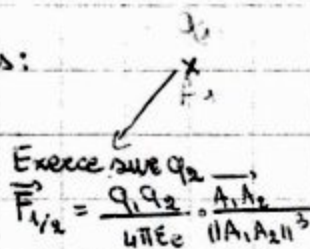 s:
Exerce sur q₂
F⃗₁/₂ = q₁q₂ / 4πε₀ · A₁A₂⃗ / ||A₁A₂||³